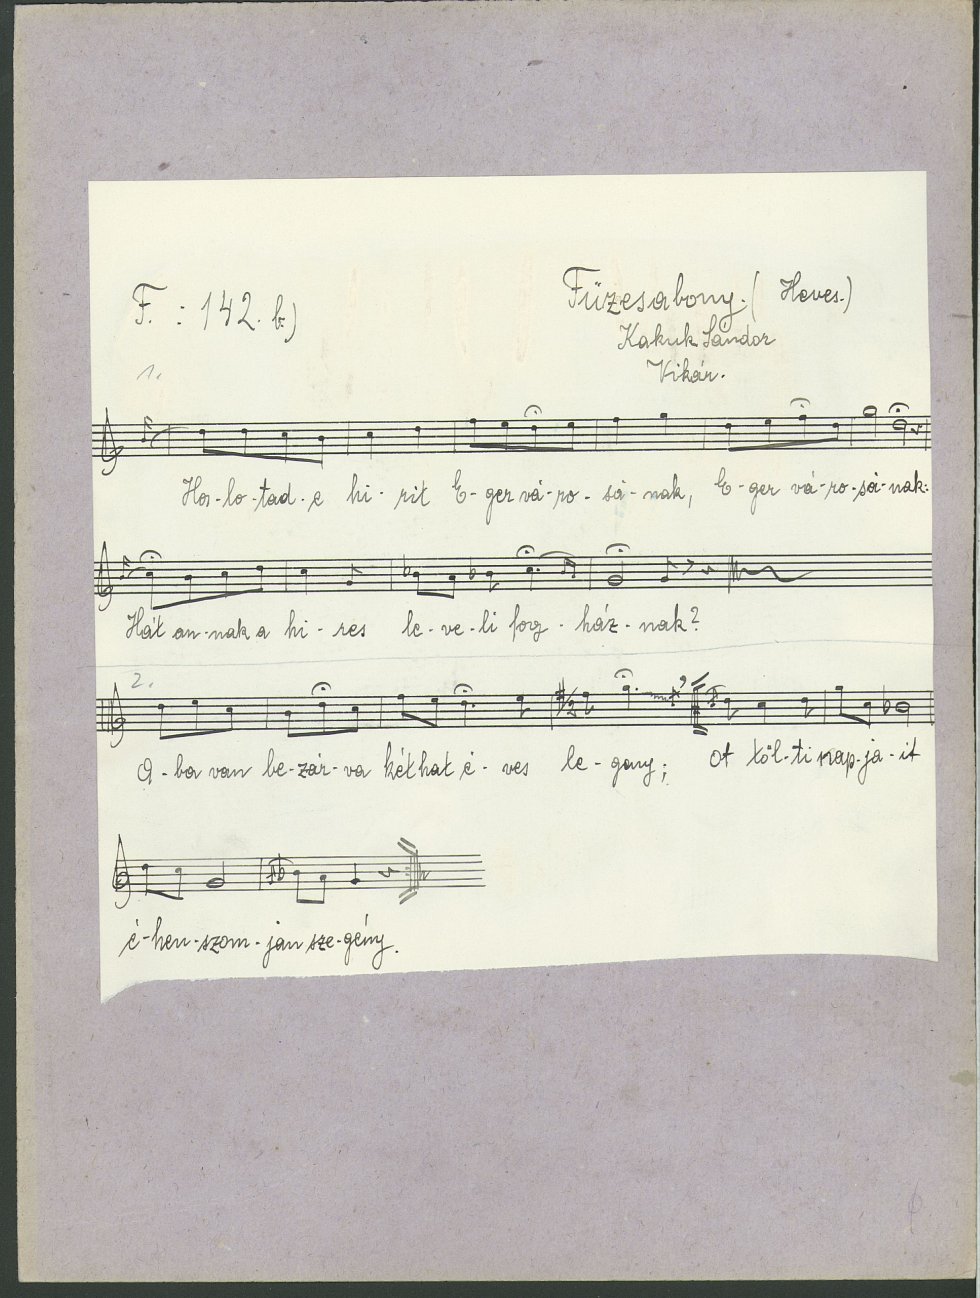 F. : 142. b.)
Füzesabony. ( Heves.)
Kakuk Sándor
Vikár.
1.
Hal-lo-tad-e hi-rit E-ger vá-ro-sá-nak, E-ger vá-ro-sá-nak:
Hát an-nak a hi-res le-ve-li fog-ház-nak?
2.
A-ba van be-zár-va két hat é-ves le-gany; ot töl-ti nap-ja-it
é-hen-szom-jan sze-gény.